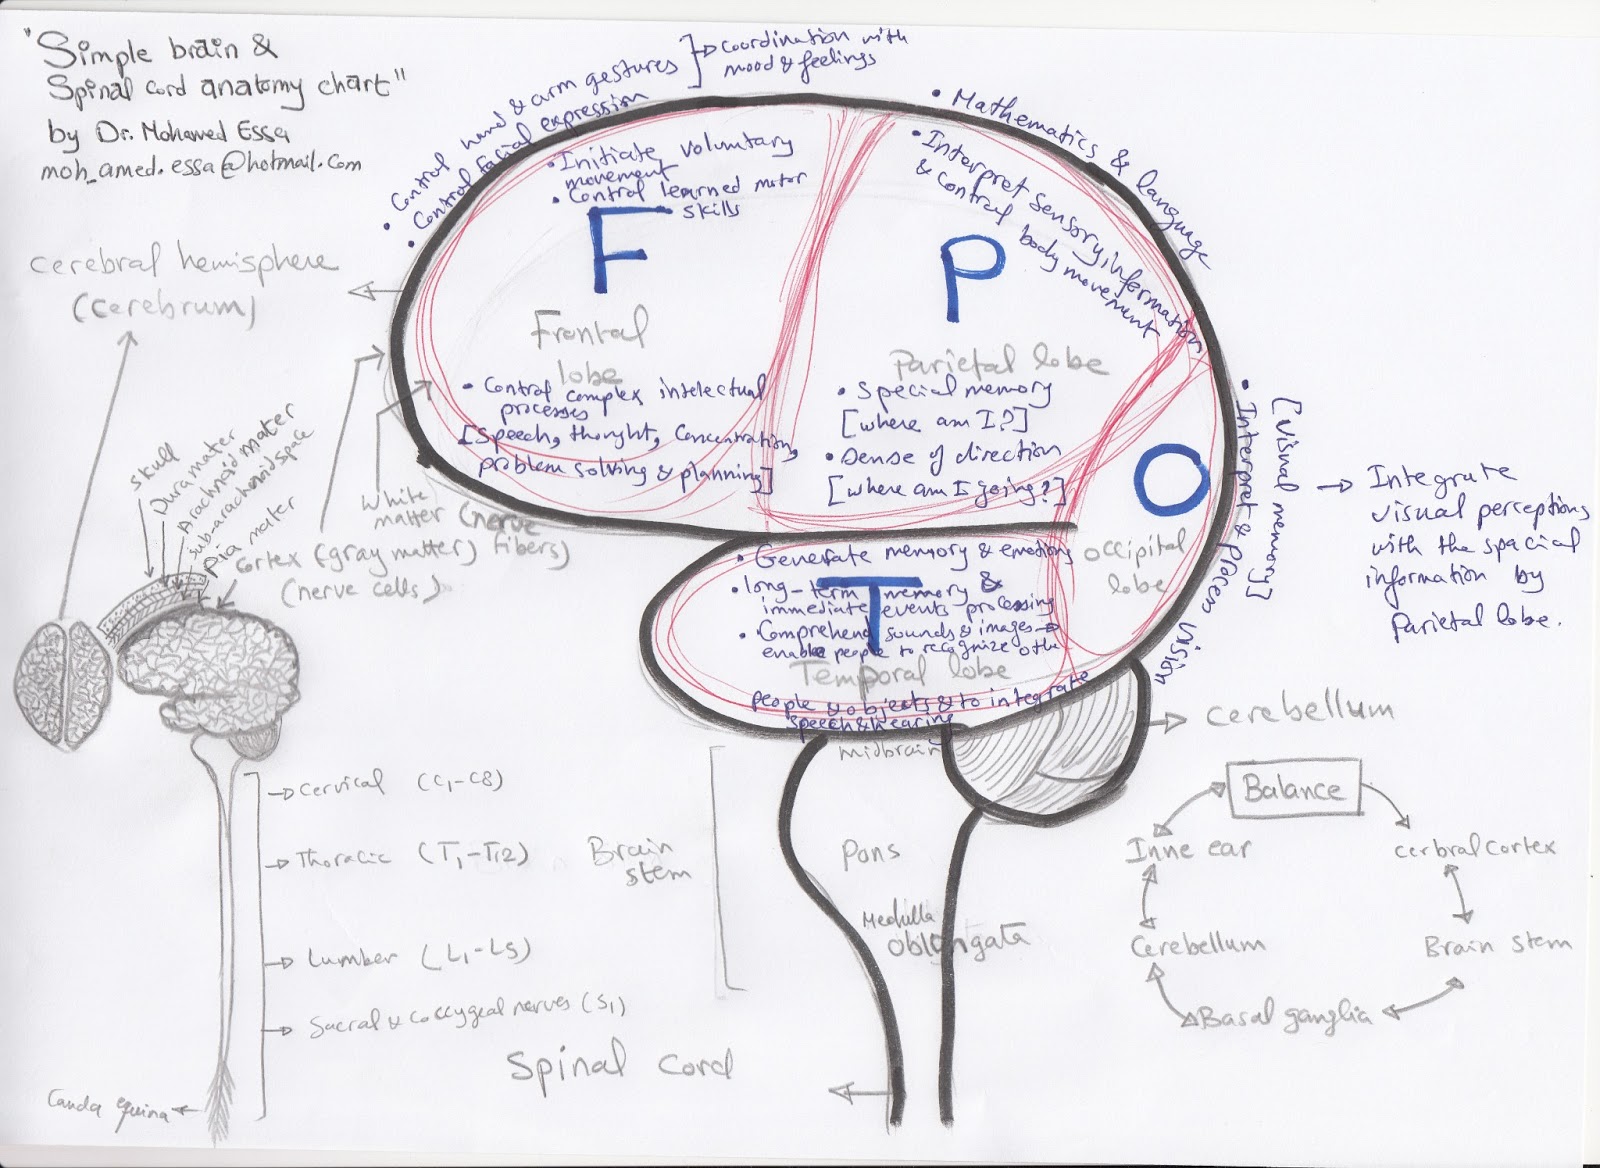 "Simple brain &
Spinal cord anatomy chart"
by Dr. Mohamed Essa
moh_amed.essa@hotmail.com
• Control hand & arm gestures
• Control facial expression
]→ Coordination with
mood & feelings
• Initiate voluntary
movement
• Control learned motor
skills
F
Frontal
lobe
• Control complex intelectual
processes
[Speech, thought, Concentration,
problem solving & planning]
• Mathematics & language
• Interpret sensory information
& control body movement
P
Parietal lobe
• Special memory
[where am I?]
• Sense of direction
[where am I going?]
O
occipital
lobe
• Interpret & placen vision
[visual memory]
→ Integrate
visual perceptions
with the spacial
information by
Parietal lobe.
• Generate memory & emotions
• long-term memory &
immediate events processing
• Comprehend sounds & images →
enable people to recognize othe
T
Temporal lobe
people & objects & to integrate
speech & hearing
cerebral hemisphere
(cerebrum)
skull
Dura mater
Arachnoid mater
subarachnoid space
pia mater
White
matter (nerve
fibers)
cortex (gray matter)
(nerve cells)
Cervical (C1-C8)
Thoracic (T1-T12)
Lumber (L1-L5)
Sacral & coccygeal nerves (S1)
Cauda equina
Brain
stem
midbrain
Pons
Medulla
oblongata
Spinal cord
cerebellum
Balance
Inne ear
cerbral cortex
Cerebellum
Brain stem
Basal ganglia